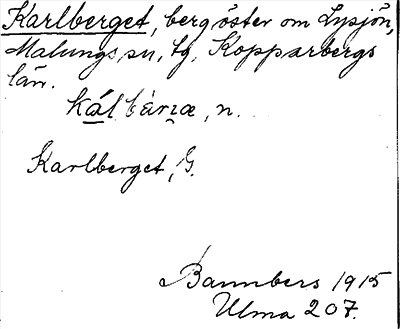 Karlberget, berg öster om Lysjön,
Malungs sn, tg, Kopparbergs
län.
kál bærıæ, n.
Karlberget, G.
Bannbers 1915
Ulma 207.